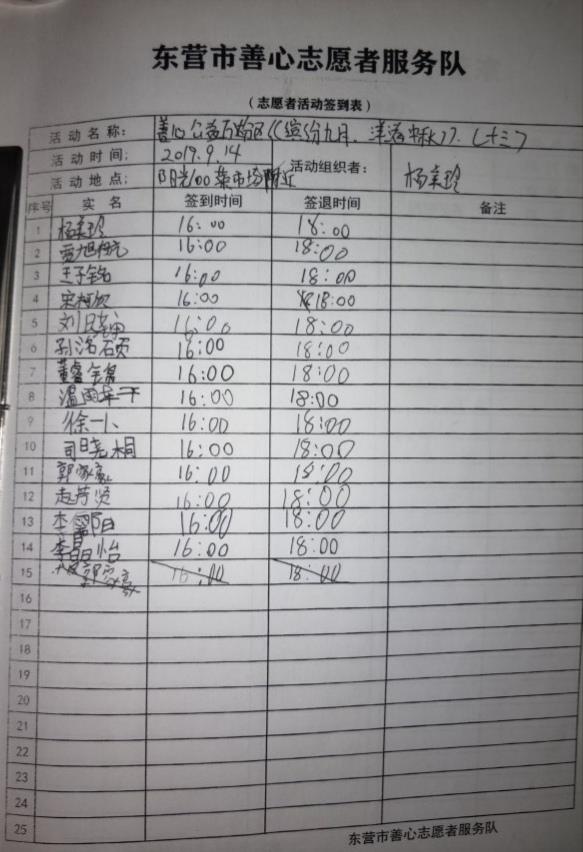 东营市善心志愿者服务队
（志愿者活动签到表）
活动名称： 善心公益 《缤纷九月、洋洛中秋》（十三）
活动时间： 2019.9.14 活动组织者： 杨美玲
活动地点： 阳光100菜市场附近
序号 实名 签到时间 签退时间 备注
1 杨美玲 16:00 18:00
2 16:00 18:00
3 王子铭 16:00 18:00
4 宋柯欣 16:00 18:00
5 16:00 18:00
6 16:00 18:00
7 董睿 16:00 18:00
8 温雨 16:00 18:00
9 徐一 16:00 18:00
10 司晓桐 16:00 18:00
11 郭家豪 16:00 18:00
12 赵芳贤 16:00 18:00
13 李 阳 16:00 18:00
14 李 怡 16:00 18:00
15 郭家豪 16:00 18:00
16
17
18
19
20
21
22
23
24
25
东营市善心志愿者服务队